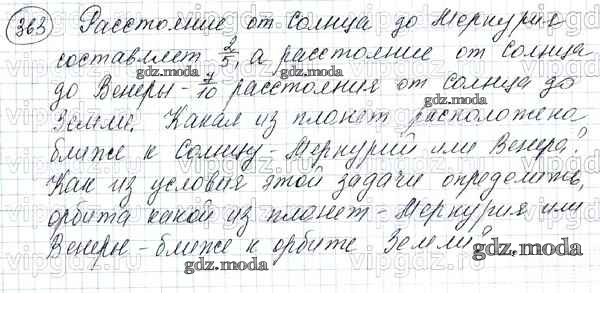 363 Расстояние от Солнца до Меркурия
составляет 2/5, а расстояние от Солнца
до Венеры - 7/10 расстояния от Солнца до
Земли. Какая из планет расположена
ближе к Солнцу - Меркурий или Венера?
Как из условия этой задачи определить,
орбита какой из планет - Меркурия или
Венеры - ближе к орбите Земли?